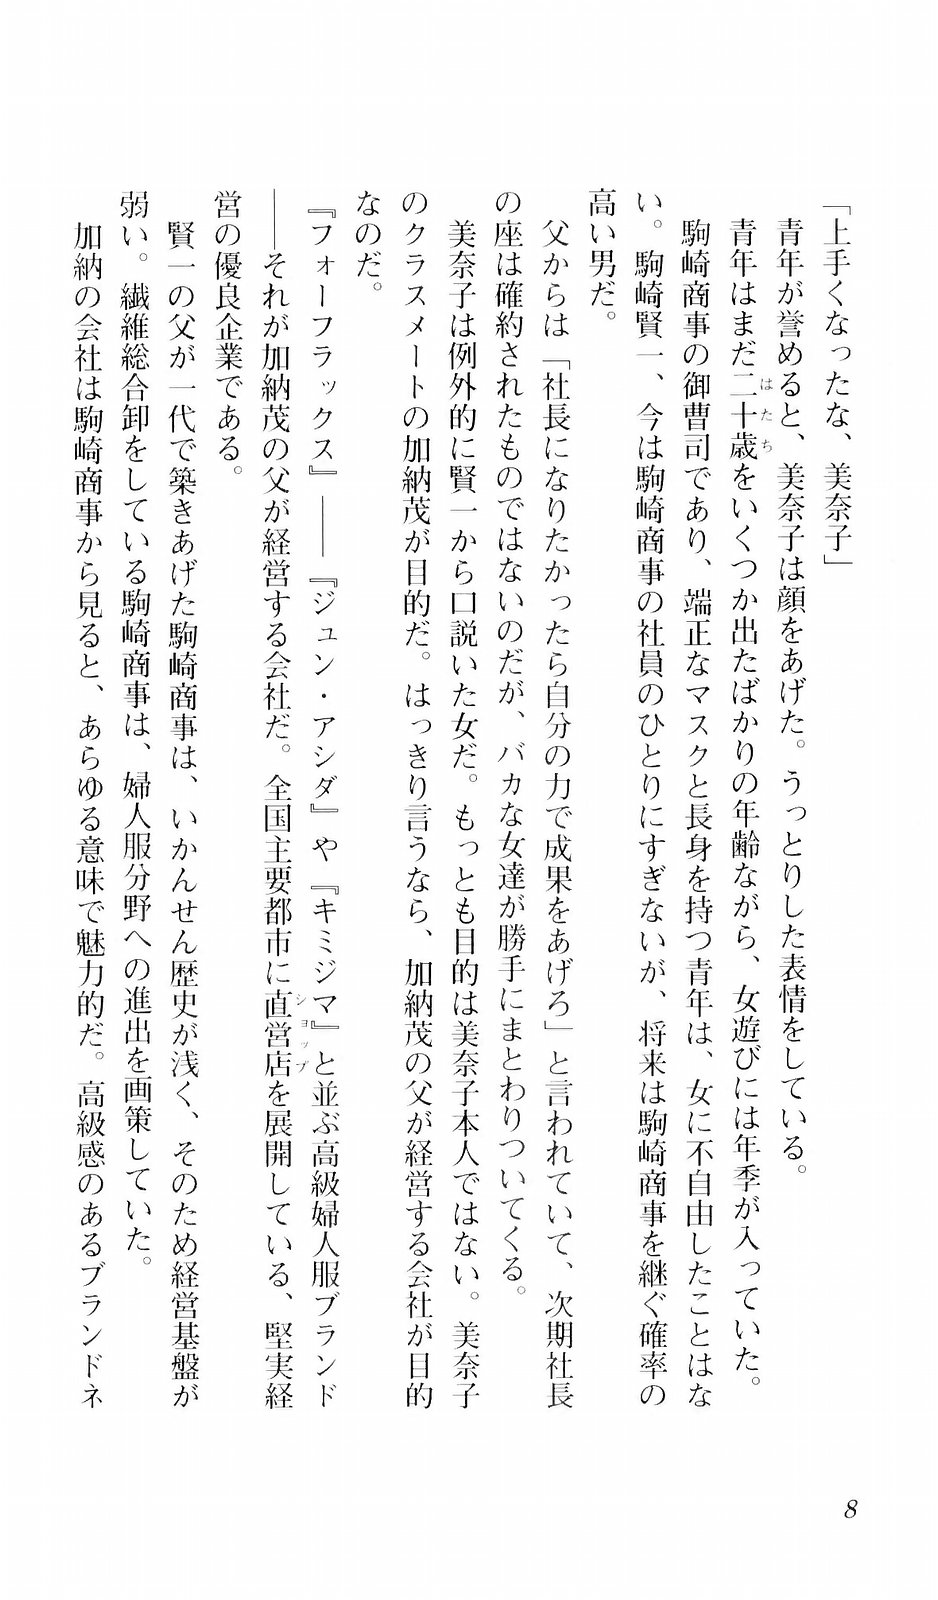 「上手くなったな、美奈子」
青年が誉めると、美奈子は顔をあげた。うっとりした表情をしている。
青年はまだ二十歳をいくつか出たばかりの年齢ながら、女遊びには年季が入っていた。
はたち
駒崎商事の御曹司であり、端正なマスクと長身を持つ青年は、女に不自由したことはな
い。駒崎賢一、今は駒崎商事の社員のひとりにすぎないが、将来は駒崎商事を継ぐ確率の
高い男だ。
父からは「社長になりたかったら自分の力で成果をあげろ」と言われていて、次期社長
の座は確約されたものではないのだが、バカな女達が勝手にまとわりついてくる。
美奈子は例外的に賢一から口説いた女だ。もっとも目的は美奈子本人ではない。美奈子
のクラスメートの加納茂が目的だ。はっきり言うなら、加納茂の父が経営する会社が目的
なのだ。
『フォーフラックス』――『ジュン・アシダ』や『キミジマ』と並ぶ高級婦人服ブランド
――それが加納茂の父が経営する会社だ。全国主要都市に直営店を展開している、堅実経
ショップ
営の優良企業である。
賢一の父が一代で築きあげた駒崎商事は、いかんせん歴史が浅く、そのため経営基盤が
弱い。繊維総合卸をしている駒崎商事は、婦人服分野への進出を画策していた。
加納の会社は駒崎商事から見ると、あらゆる意味で魅力的だ。高級感のあるブランドネ
8